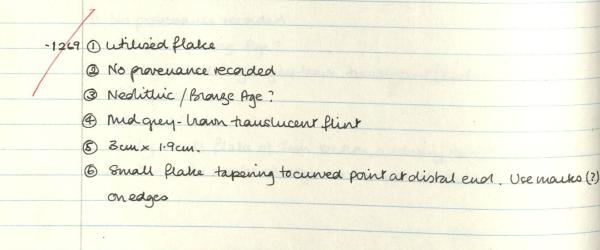 -1269 ① Utilised flake
② No provenance recorded
③ Neolithic / Bronze Age?
④ Mid grey-brown translucent flint
⑤ 3cm x 1.9cm.
⑥ Small flake tapering to curved point at distal end. Use marks (?)
on edges